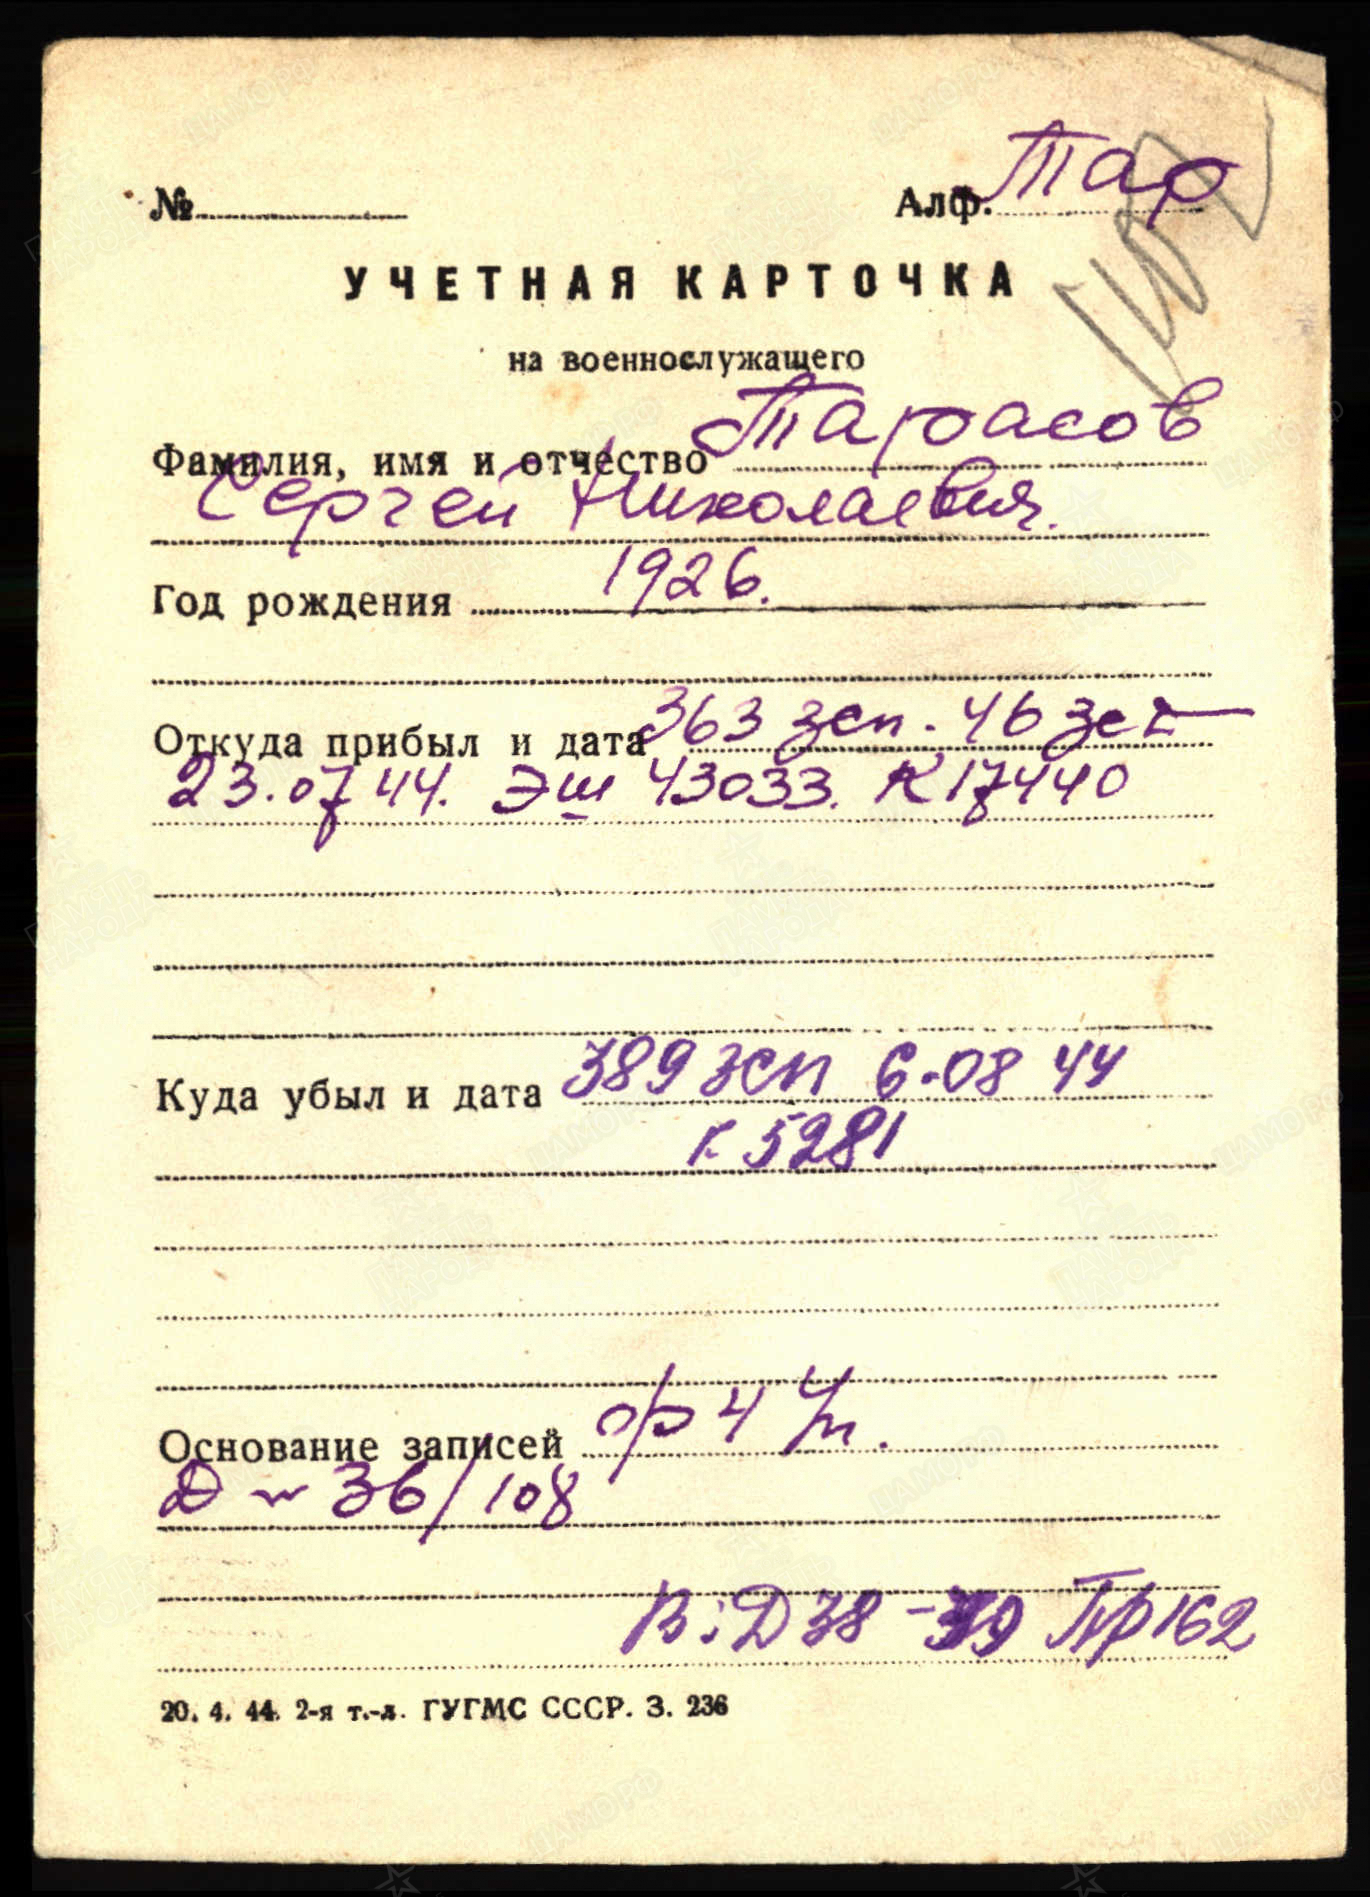 № Алф. Тар
УЧЕТНАЯ КАРТОЧКА
на военнослужащего
Фамилия, имя и отчество Тарасов
Сергей Николаевич.
Год рождения 1926.
Откуда прибыл и дата 363 зсп. 46 зсд
23.07 44. Эш 43033. К 17440
Куда убыл и дата 389 зсп 6.08 44
к 5281
Основание записей ор 4
Д 36/108
В: Д 38 Пр 162
20. 4. 44. 2-я т.-л. ГУГМС СССР. З. 236